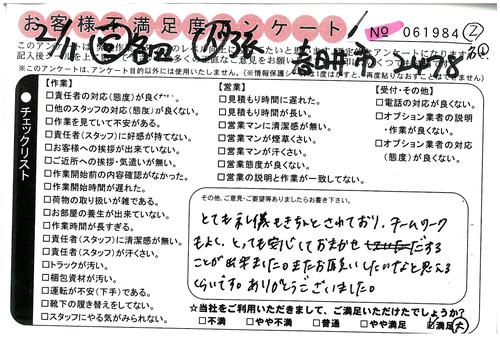 お客様不満足度アンケート
No 061984
春日井市
記入後シールを
※このアンケートは、アンケート目的以外には使用いたしません。
チェックリスト
【作業】
□責任者の対応(態度)が良くない。
□他のスタッフの対応(態度)が良くない。
□作業を見ていて不安がある。
□責任者(スタッフ)に好感が持てない。
□お客様への挨拶が出来ていない。
□ご近所への挨拶・気遣いが無い。
□作業開始前の内容確認がなかった。
□作業開始時間が遅れた。
□荷物の取り扱いが雑である。
□お部屋の養生が出来ていない。
□作業時間が長すぎる。
□責任者(スタッフ)に清潔感が無い。
□責任者(スタッフ)が汗くさい。
□トラックが汚い。
□梱包資材が汚い。
□運転が不安(下手)である。
□靴下の履き替えをしてない。
□スタッフにやる気がみられない。
【営業】
□見積もり時間に遅れた。
□見積もり時間が長い。
□営業マンに清潔感が無い。
□営業マンが煙草くさい。
□営業マンが汗くさい。
□営業態度が良くない。
□営業の説明と作業が一致してない。
【受付・その他】
□電話の対応が良くない。
□オプション業者の説明・作業が良くない。
□オプション業者の対応(態度)が良くない。
その他、ご意見・ご要望等ありましたらお書き下さい。
とても礼儀もきちんとされており、チームワーク
もよく、とっても安心しておまかせする
ことが出来ました。またお願いしたいなと思える
くらいです。ありがとうございました。
☆当社をご利用いただきまして、ご満足いただけたでしょうか?
□不満 □やや不満 □普通 □やや満足 □満足(大)